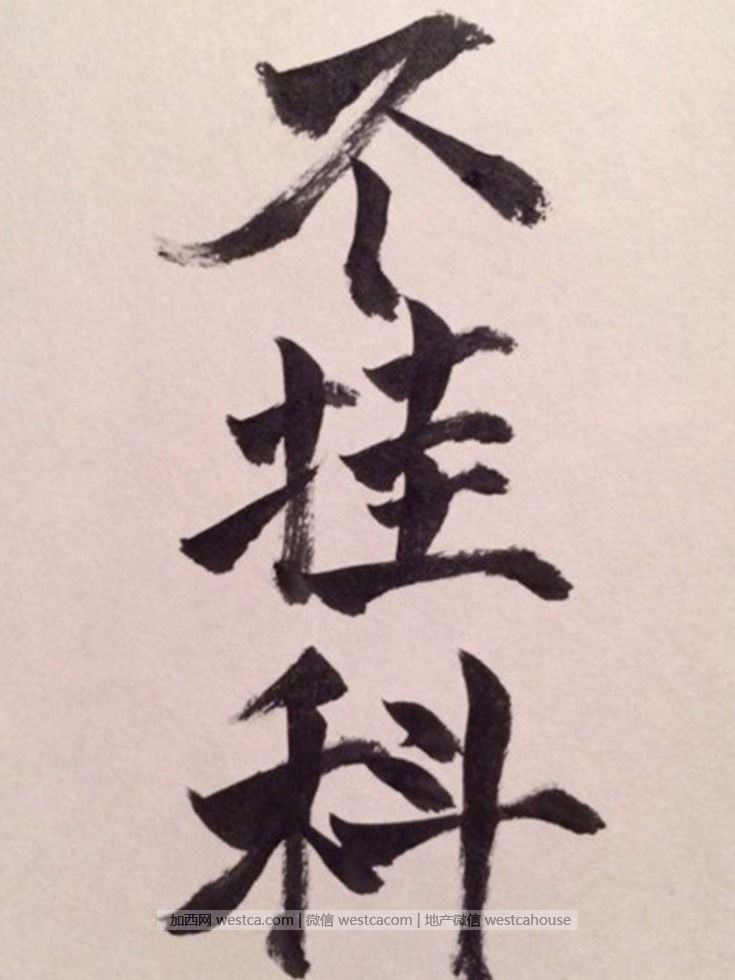 不挂科
加西网 westca.com | 微信 westcacom | 地产微信 westcahouse